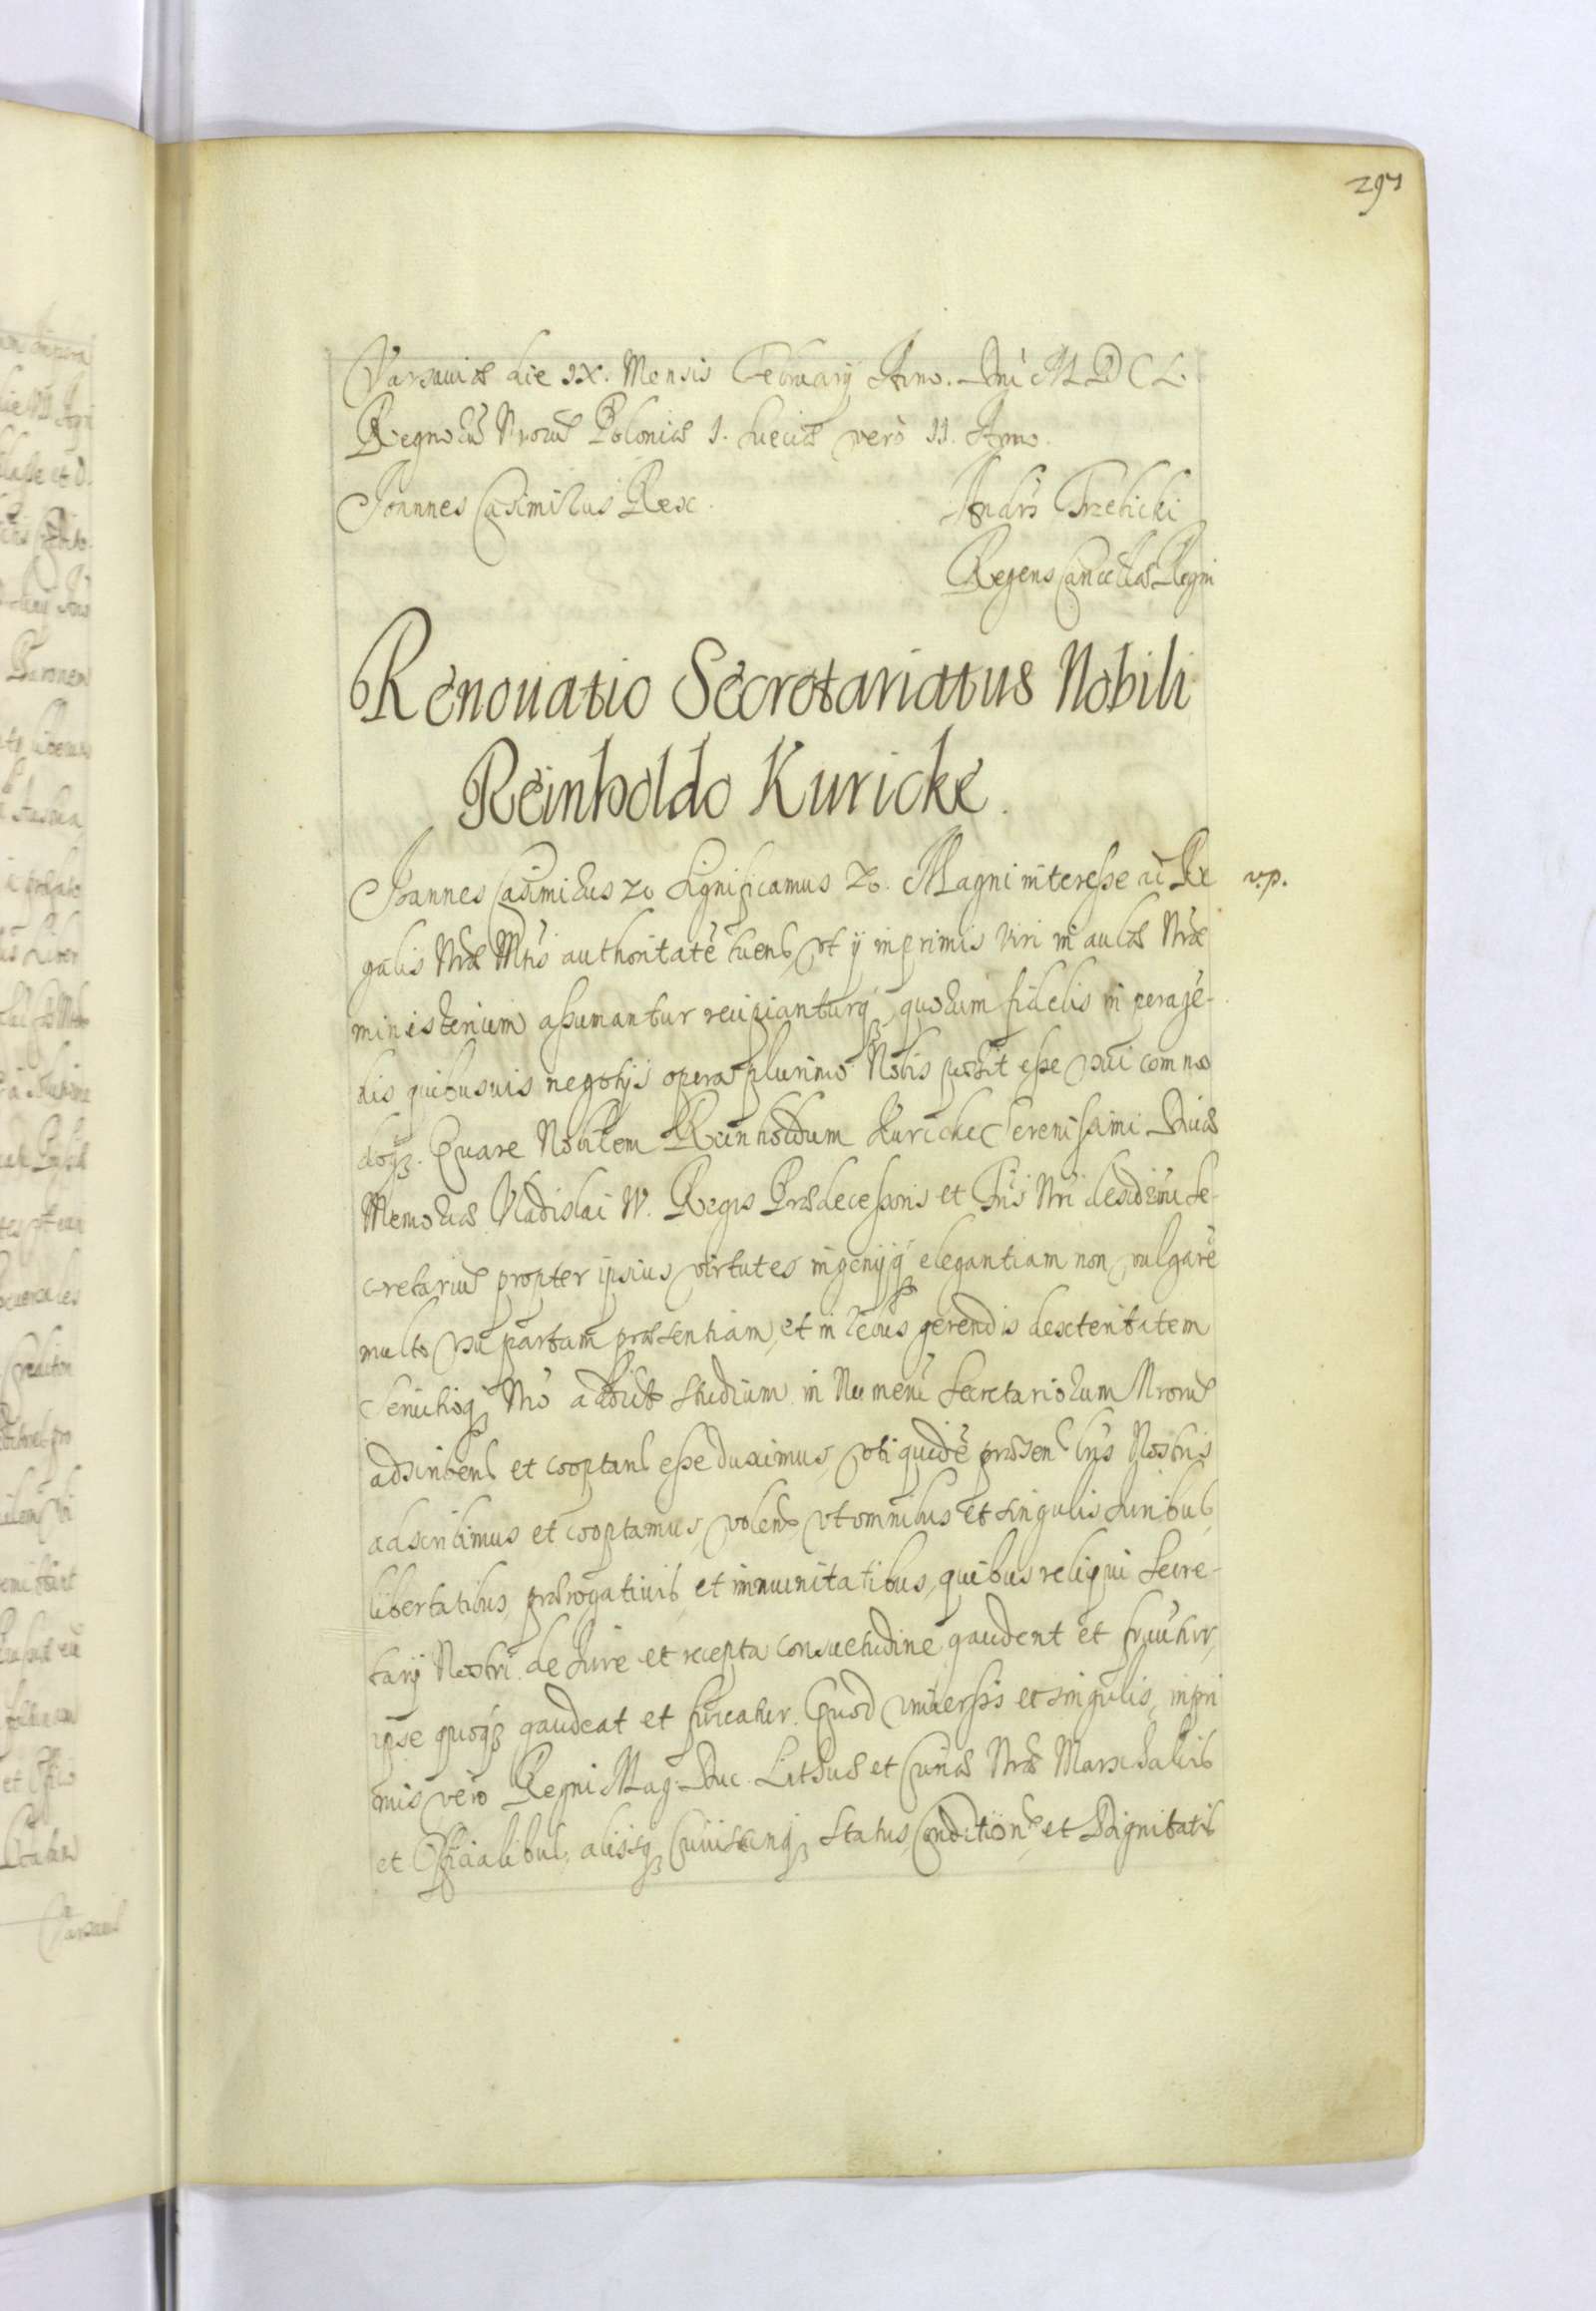 297
Varsauiæ die IX. Mensis February Anno. Dni M D C L.
Regnorũ Nrorũ Poloniæ 1. Sueciæ verò 11. Anno.
Joannes Casimirus Rex.
Andrs Trzebicki
Regens Cancellæ Regni
Renouatio Secretariatus Nobili
Reinholdo Kuricke.
Joannes Casimirus &c Significamus &c. Magni interesse ad Re v.p.
galis Nræ Mtis authoritatẽ tuend, vt ij inprimis viri in aulæ Nræ
ministerium assumantur recipianturq, quorum fidelis in peragẽ-
dis quibusuis negotijs opera plurimo Nobis possit esse vsui commo
doq. Quare Nobilem Reinholdum Kuricke Serenissimi Diuæ
Memoriæ Vladislai IV. Regis Prædecessoris et Fris Nri desidmi Se-
cretariũ propter ipsius virtutes ingenijq elegantiam non vulgarẽ
multo vsu partam præstentiam, et in rebus gerendis dexteritatem
Seruitioq Nro addict studium in Numerũ Secretariorum Nrorũ
adscribend et cooptand esse duximus, vti quidẽ præsent lris Nostris
adscribimus et cooptamus, volent, vt omnibus et singulis Juribus,
libertatibus, prærogatiuis, et immunitatibus, quibus reliqui Secre-
tarij Nostri de Jure et recepta consuetudine gaudent et fruuntur,
ipse quoq gaudeat et fruatur. Quod vniuersis et singulis, inpri
mis vero Regni Mag. Duc. Lithuæ et Curiæ Nræ Marschalcis
et Officialibus, alijsq cuiuscunq status, Condition, et Dignitatis